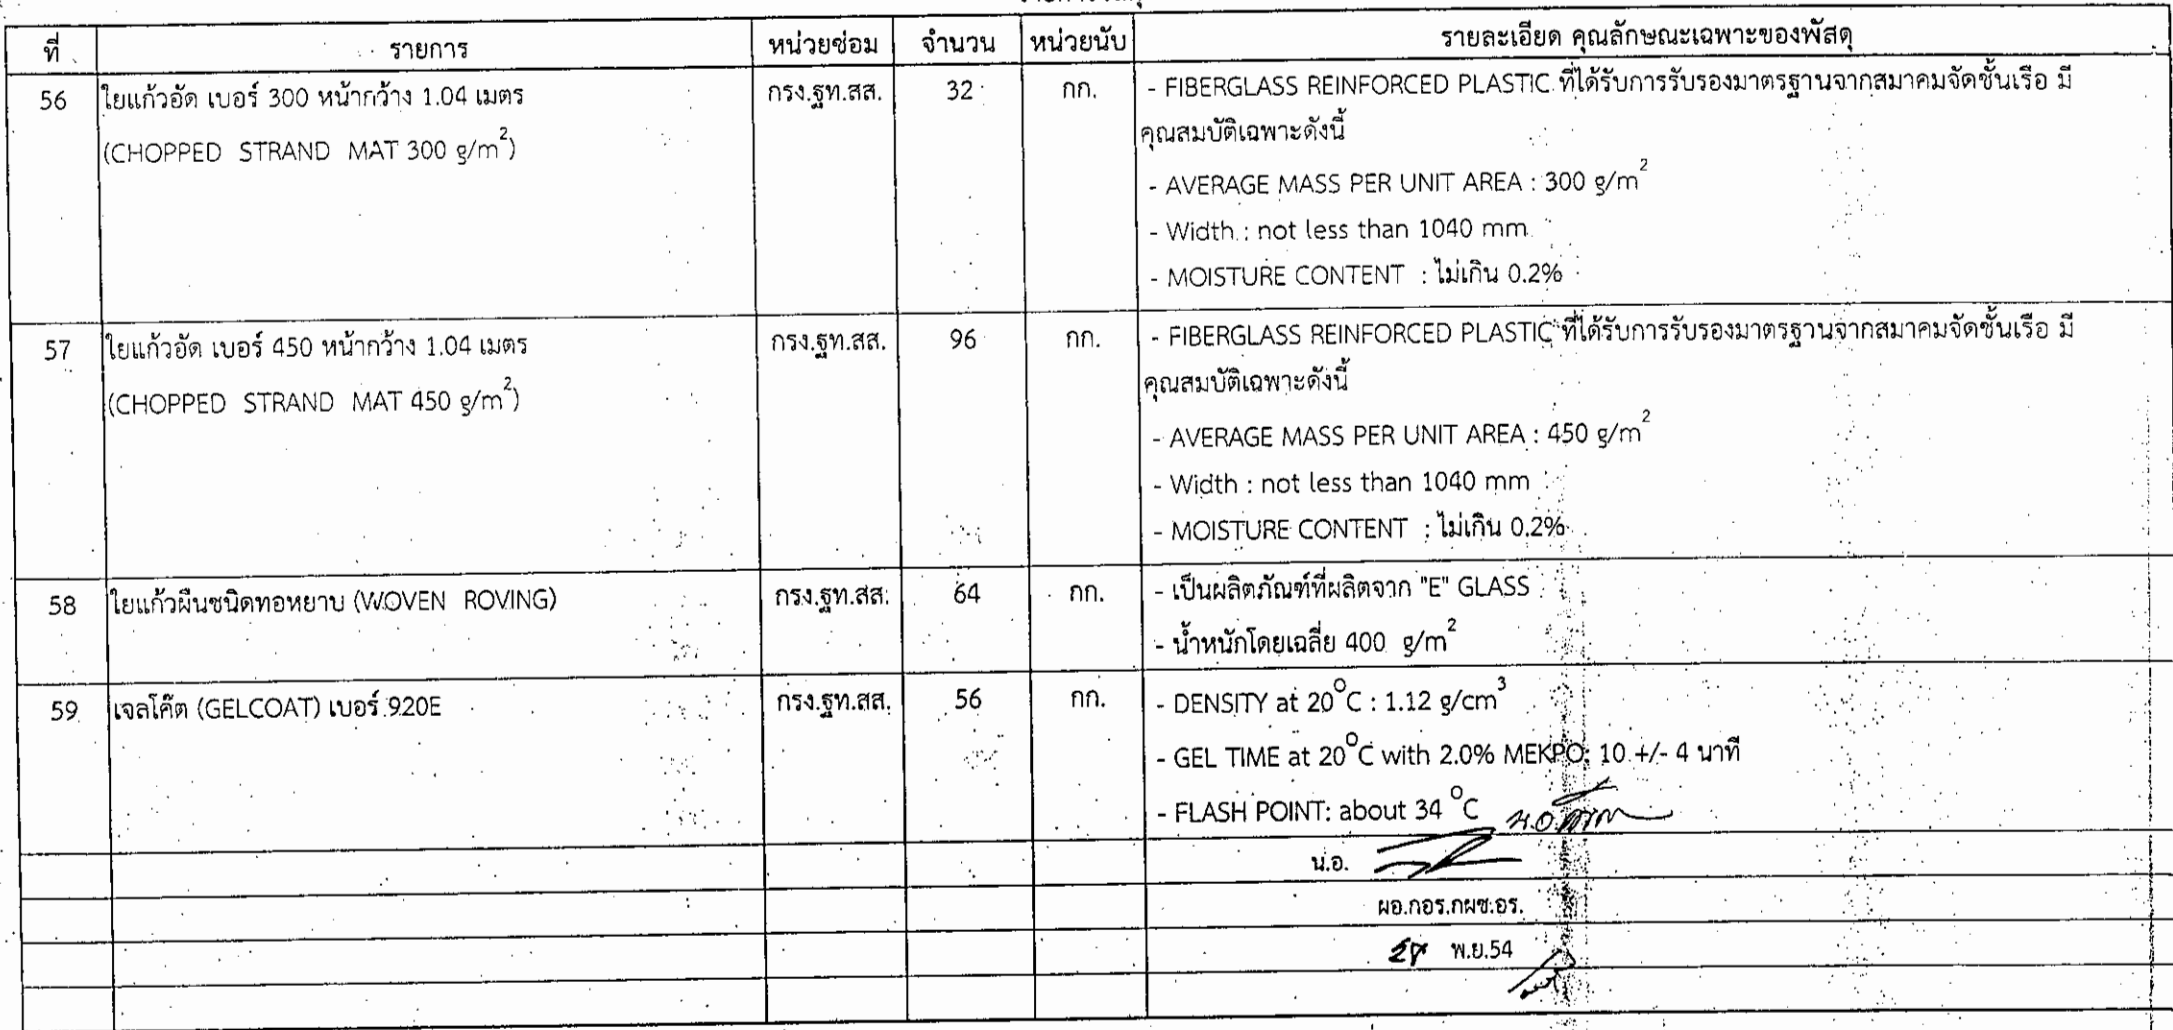 ที่ รายการ หน่วยซ่อม จำนวน หน่วยนับ รายละเอียด คุณลักษณะเฉพาะของพัสดุ
56 ใยแก้วอัด เบอร์ 300 หน้ากว้าง 1.04 เมตร กรง.ฐท.สส. 32 กก. - FIBERGLASS REINFORCED PLASTIC ที่ได้รับการรับรองมาตรฐานจากสมาคมจัดชั้นเรือ มี
(CHOPPED STRAND MAT 300 g/m²) คุณสมบัติเฉพาะดังนี้
- AVERAGE MASS PER UNIT AREA : 300 g/m²
- Width : not less than 1040 mm
- MOISTURE CONTENT : ไม่เกิน 0.2%
57 ใยแก้วอัด เบอร์ 450 หน้ากว้าง 1.04 เมตร กรง.ฐท.สส. 96 กก. - FIBERGLASS REINFORCED PLASTIC ที่ได้รับการรับรองมาตรฐานจากสมาคมจัดชั้นเรือ มี
(CHOPPED STRAND MAT 450 g/m²) คุณสมบัติเฉพาะดังนี้
- AVERAGE MASS PER UNIT AREA : 450 g/m²
- Width : not less than 1040 mm
- MOISTURE CONTENT : ไม่เกิน 0.2%
58 ใยแก้วผืนชนิดทอหยาบ (WOVEN ROVING) กรง.ฐท.สส. 64 กก. - เป็นผลิตภัณฑ์ที่ผลิตจาก "E" GLASS
- น้ำหนักโดยเฉลี่ย 400 g/m²
59 เจลโค๊ต (GELCOAT) เบอร์ 920E กรง.ฐท.สส. 56 กก. - DENSITY at 20°C : 1.12 g/cm³
- GEL TIME at 20°C with 2.0% MEKPO: 10 +/- 4 นาที
- FLASH POINT: about 34 °C
น.อ.
ผอ.กอร.กผช.อร.
พ.ย.54